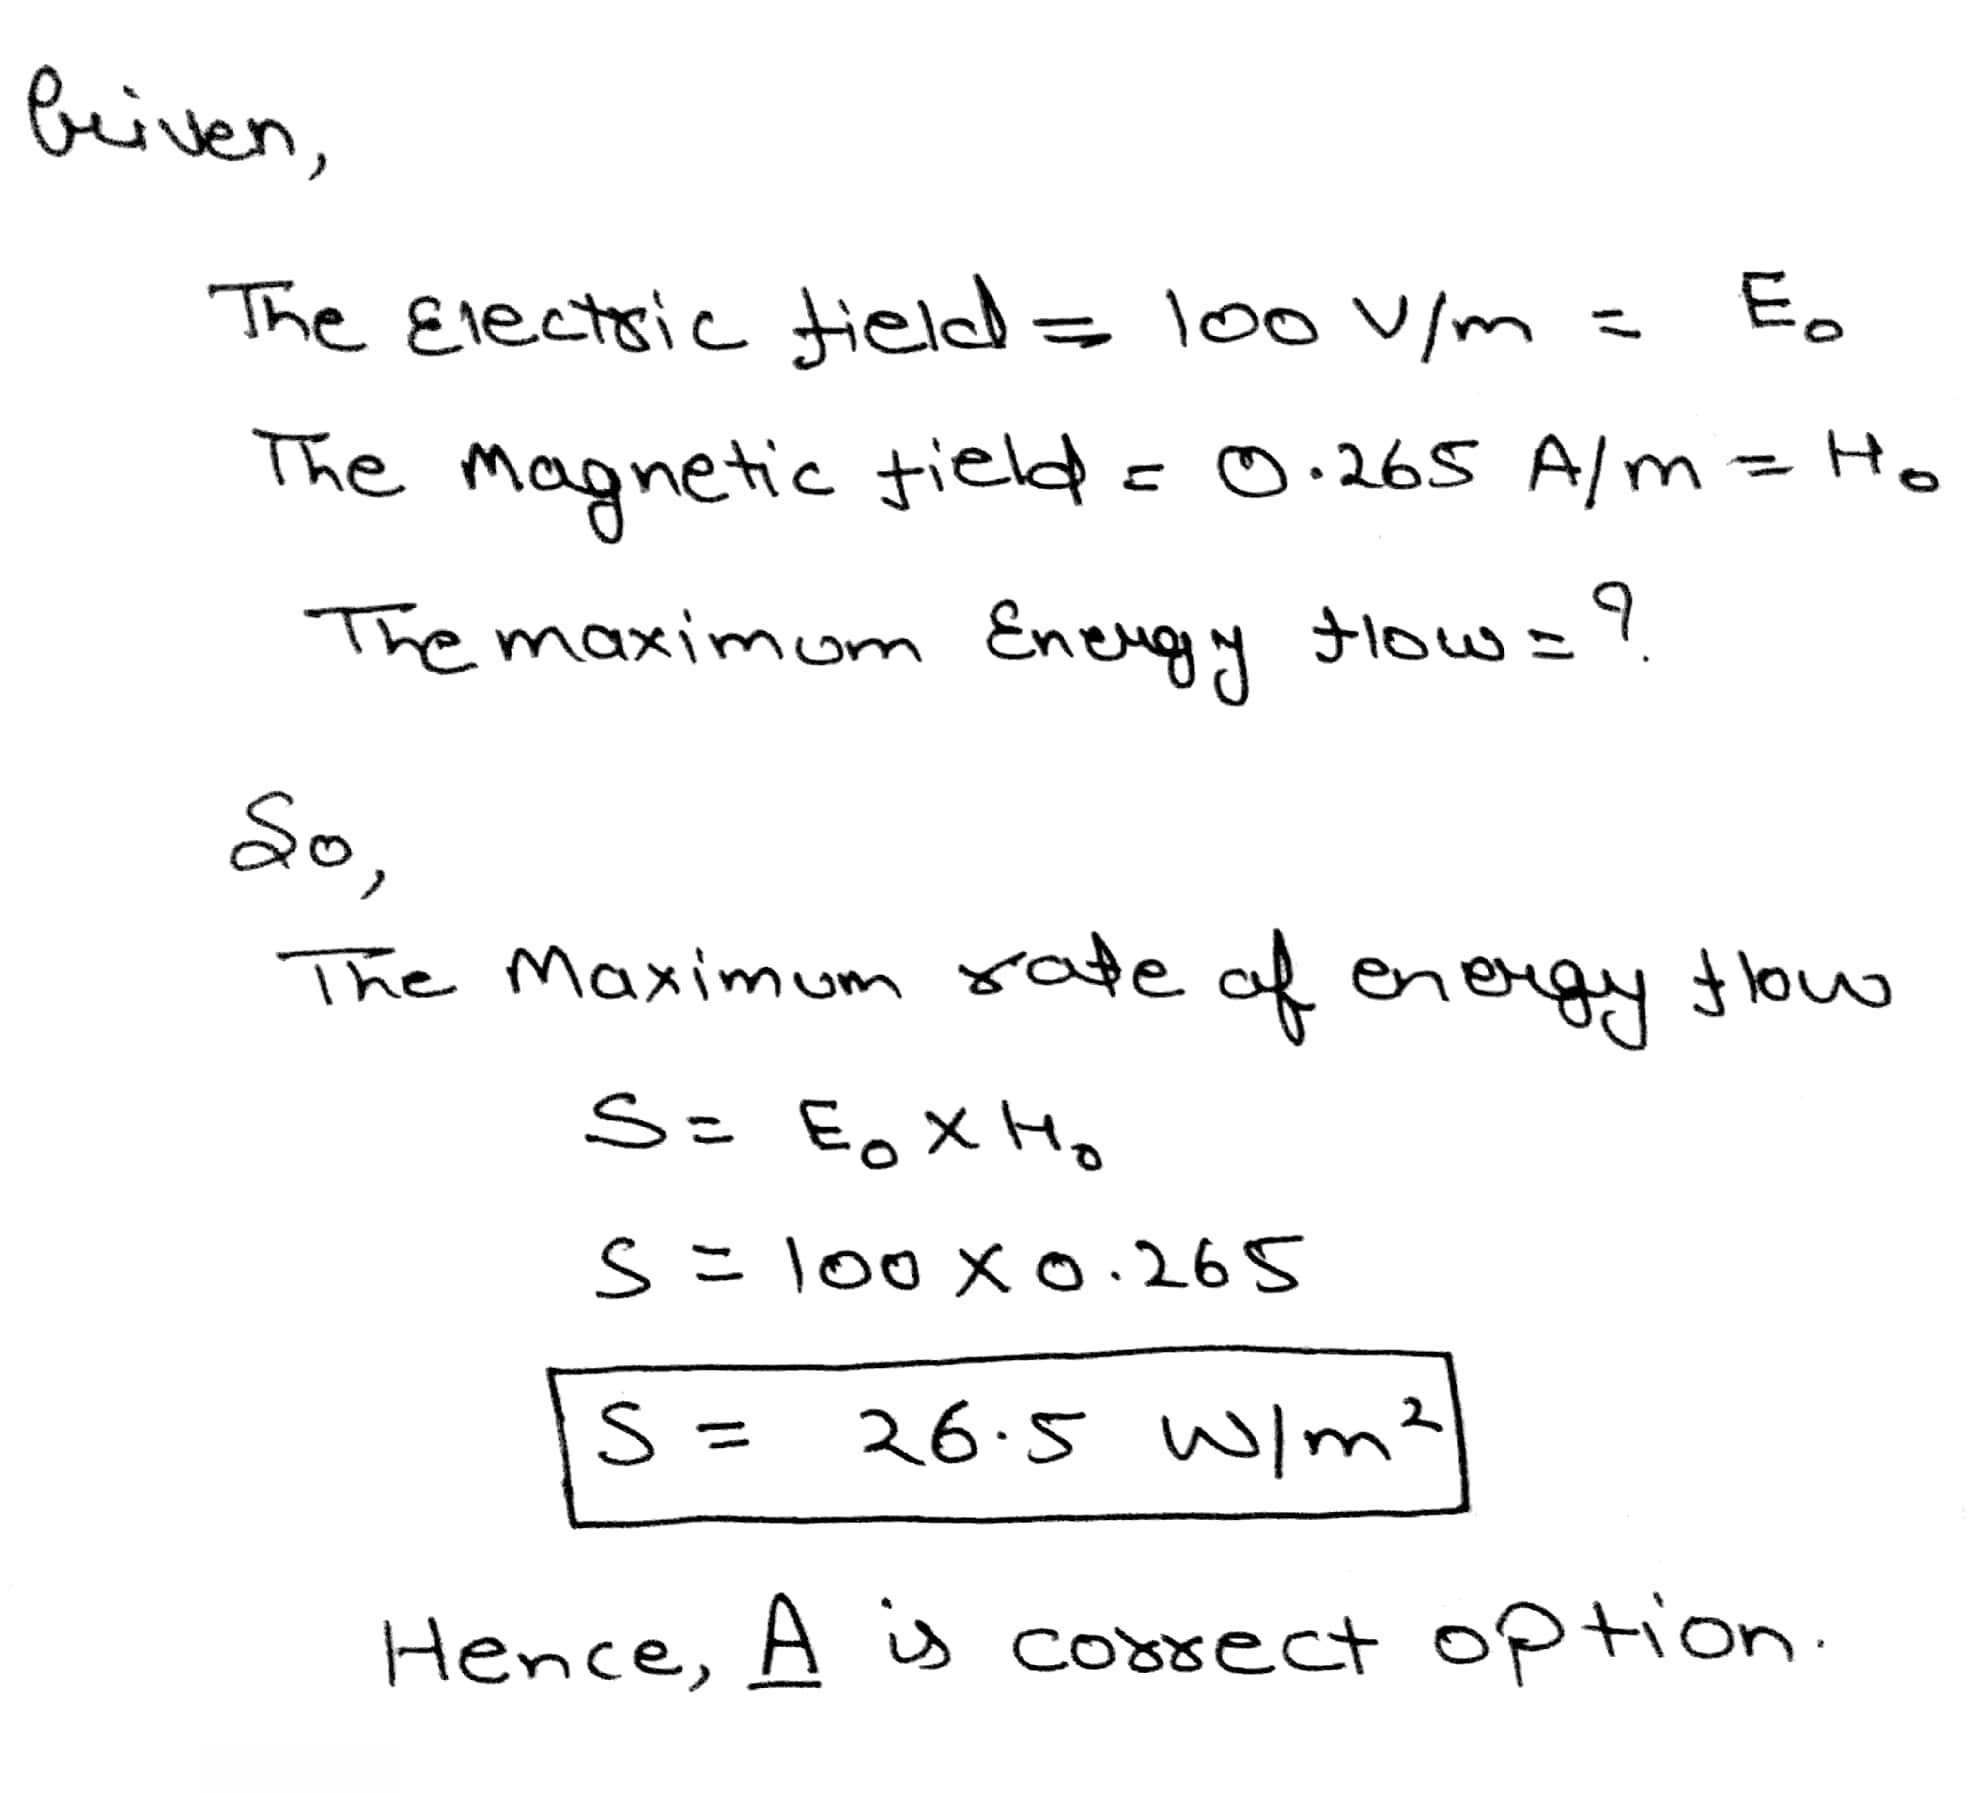 Given,
The Electric field = 100 V/m = E₀
The Magnetic field = 0.265 A/m = H₀
The maximum Energy flow = ?
So,
The Maximum rate of energy flow
S = E₀ × H₀
S = 100 × 0.265
S = 26.5 W/m²
Hence, A is correct option.